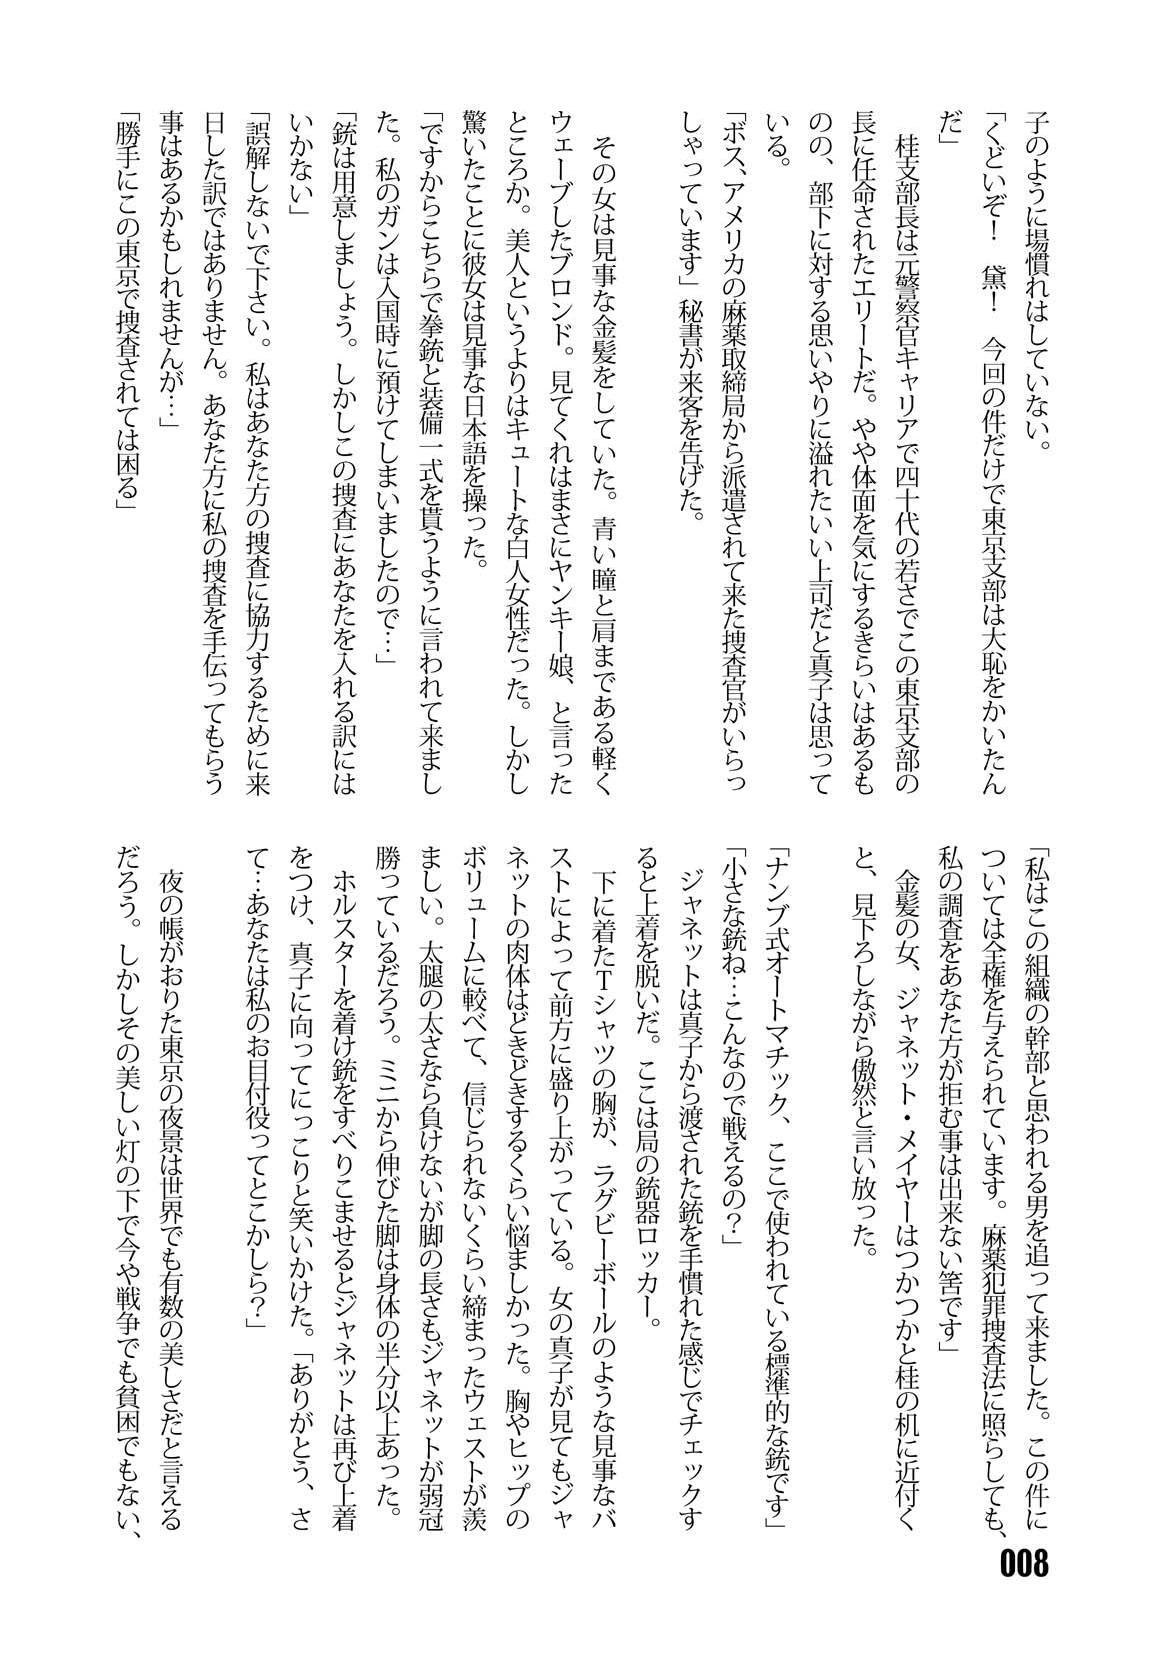 子のように場慣れはしていない。
「くどいぞ！　黛！　今回の件だけで東京支部は大恥をかいたん
だ」
　桂支部長は元警察官キャリアで四十代の若さでこの東京支部の
長に任命されたエリートだ。やや体面を気にするきらいはあるも
のの、部下に対する思いやりに溢れたいい上司だと真子は思って
いる。
「ボス、アメリカの麻薬取締局から派遣されて来た捜査官がいらっ
しゃっています」秘書が来客を告げた。
　その女は見事な金髪をしていた。青い瞳と肩まである軽く
ウェーブしたブロンド。見てくれはまさにヤンキー娘、と言った
ところか。美人というよりはキュートな白人女性だった。しかし
驚いたことに彼女は見事な日本語を操った。
「ですからこちらで拳銃と装備一式を貰うように言われて来まし
た。私のガンは入国時に預けてしまいましたので…」
「銃は用意しましょう。しかしこの捜査にあなたを入れる訳には
いかない」
「誤解しないで下さい。私はあなた方の捜査に協力するために来
日した訳ではありません。あなた方に私の捜査を手伝ってもらう
事はあるかもしれませんが…」
「勝手にこの東京で捜査されては困る」
「私はこの組織の幹部と思われる男を追って来ました。この件に
ついては全権を与えられています。麻薬犯罪捜査法に照らしても、
私の調査をあなた方が拒む事は出来ない筈です」
　金髪の女、ジャネット・メイヤーはつかつかと桂の机に近付く
と、見下ろしながら傲然と言い放った。
「ナンブ式オートマチック、ここで使われている標準的な銃です」
「小さな銃ね…こんなので戦えるの？」
　ジャネットは真子から渡された銃を手慣れた感じでチェックす
ると上着を脱いだ。ここは局の銃器ロッカー。
　下に着たTシャツの胸が、ラグビーボールのような見事なバ
ストによって前方に盛り上がっている。女の真子が見てもジャ
ネットの肉体はどきどきするくらい悩ましかった。胸やヒップの
ボリュームに較べて、信じられないくらい締まったウェストが羨
ましい。太腿の太さなら負けないが脚の長さもジャネットが弱冠
勝っているだろう。ミニから伸びた脚は身体の半分以上あった。
　ホルスターを着け銃をすべりこませるとジャネットは再び上着
をつけ、真子に向ってにっこりと笑いかけた。「ありがとう、さ
て…あなたは私のお目付役ってとこかしら？」
　夜の帳がおりた東京の夜景は世界でも有数の美しさだと言える
だろう。しかしその美しい灯の下で今や戦争でも貧困でもない、
008